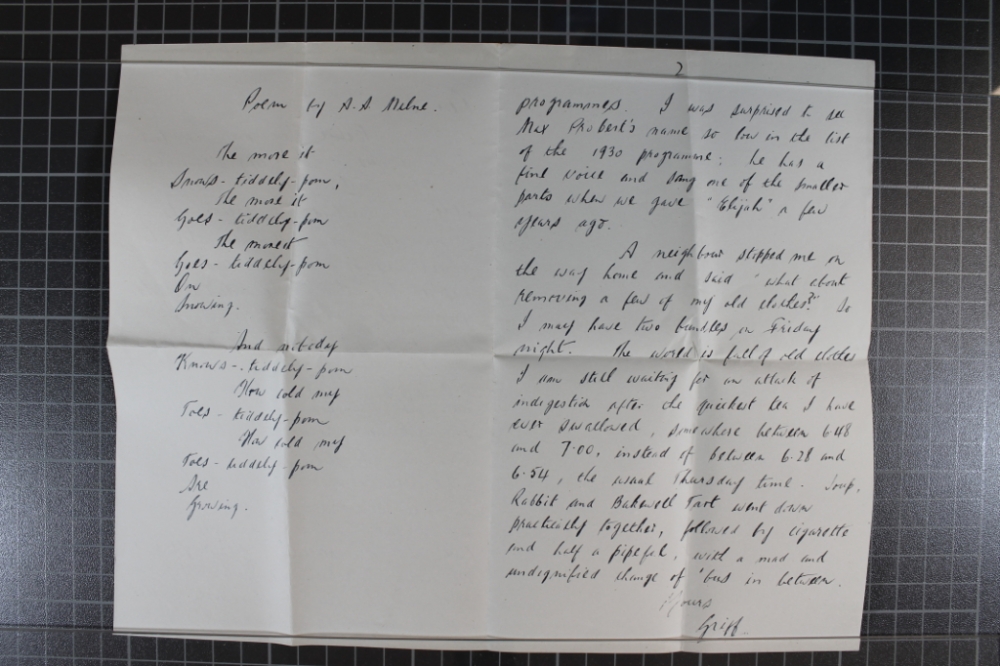 Poem by A. A. Milne.
The more it
Snows - tiddely-pom,
The more it
Goes - tiddely-pom
The more it
Goes - tiddely-pom
On
Snowing.
And nobody
Knows - tiddely-pom
How cold my
Toes - tiddely-pom
How cold my
Toes - tiddely-pom
Are
Growing.
2
programmes. I was surprised to see
Max Probert's name so low in the list
of the 1930 programme; he has a
fine voice and sang one of the smaller
parts when we gave "Elijah" a few
years ago.
A neighbour stopped me on
the way home and said "what about
removing a few of my old clothes?" So
I may have two bundles on Friday
night. The world is full of old clothes
I am still waiting for an attack of
indigestion after the quickest tea I have
ever swallowed, somewhere between 6.48
and 7.00, instead of between 6.28 and
6.54, the usual Thursday time. Soup,
Rabbit and Bakewell Tart went down
practically together, followed by cigarette
and half a pipeful, with a mad and
undignified change of 'bus in between.
Yours
Griff.